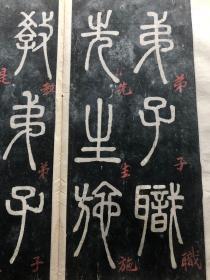 弟子職
弟子職
先生施
先生施
教弟子
教弟子
是